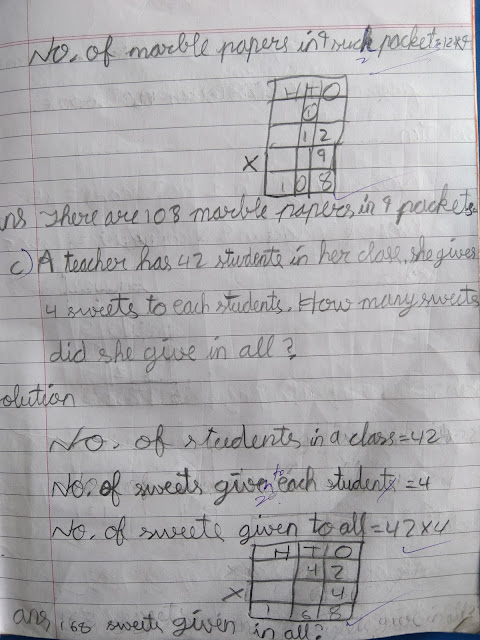 No. of marble papers in 9 such packet = 12×9
H T O
1
1 2
× 9
1 0 8
ans There are 108 marble papers in 9 packets.
c) A teacher has 42 students in her class, she gives
4 sweets to each students. How many sweets
did she give in all?
olution
No. of students in a class = 42
No. of sweets given to each students = 4
No. of sweets given to all = 42×4
H T O
4 2
× 4
1 6 8
ans 168 sweets given in all?